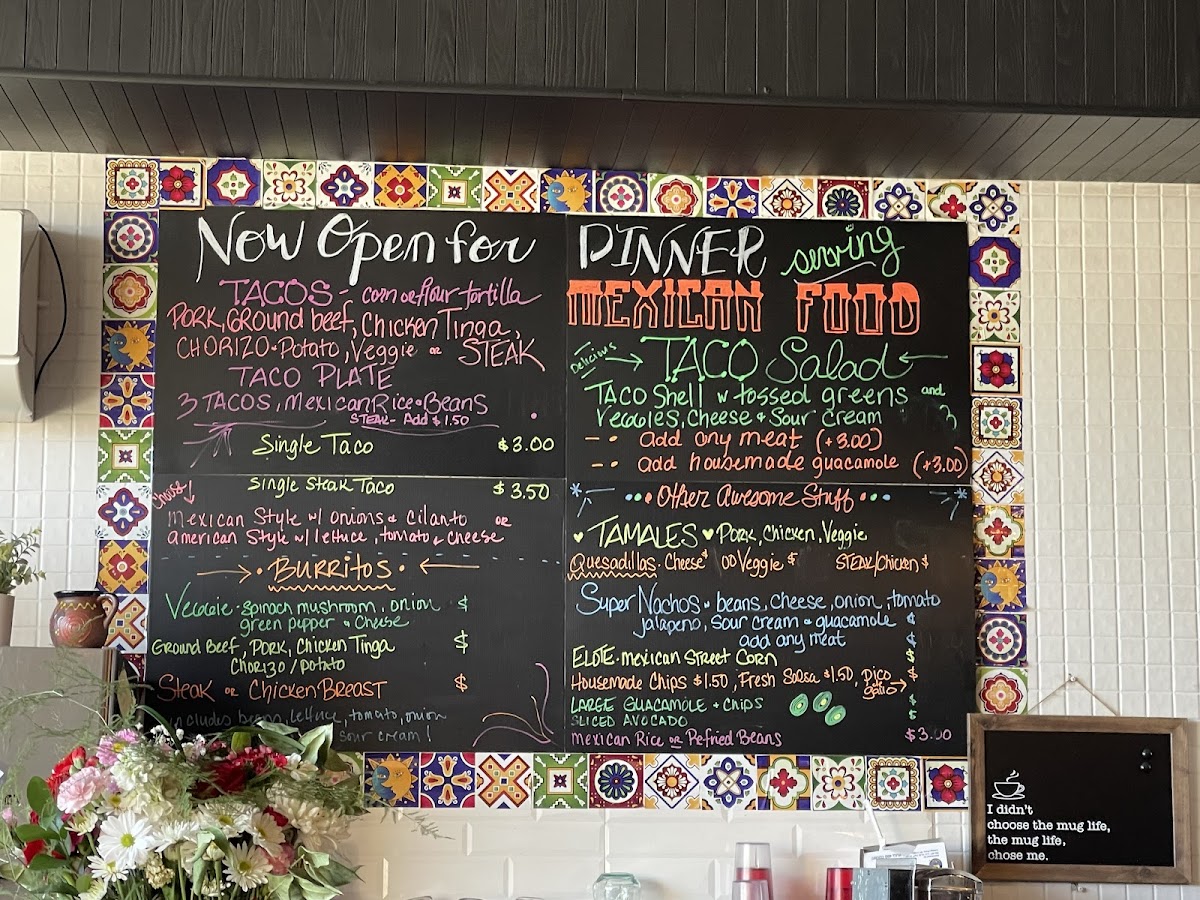 Now Open for
TACOS - corn or flour tortilla
PORK, Ground beef, Chicken Tinga,
CHORIZO•Potato, Veggie or STEAK
TACO PLATE
3 TACOS, Mexican Rice•Beans
STEAK- Add $1.50
Single Taco $3.00
Single Steak Taco $3.50
Choose
Mexican Style w/ onions & Cilanto or
American Style w/ lettuce, tomato & cheese
• BURRITOS •
Veggie • Spinach mushroom, onion $
green pepper & Cheese
Ground Beef, Pork, Chicken Tinga $
Chorizo / potato
Steak or Chicken Breast $
includes beans, lettuce, tomato, onion
sour cream!
DINNER serving
MEXICAN FOOD
Delicious TACO Salad
Taco Shell w tossed greens and
Veggies, Cheese & Sour Cream
add any meat (+3.00)
add housemade guacamole (+3.00)
Other Awesome Stuff
TAMALES Pork, Chicken, Veggie
Quesadillas • Cheese $ Veggie $ STEAK/Chicken $
Super Nachos • beans, cheese, onion, tomato
jalapeno, sour cream & guacamole
add any meat
ELOTE • mexican Street Corn $
Housemade Chips $1.50, Fresh Salsa $1.50, Pico $
de gallo
LARGE GUACAMOLE & Chips $
SLICED AVOCADO $
Mexican Rice or Refried Beans $3.00
I didn't
choose the mug life,
the mug life,
chose me.